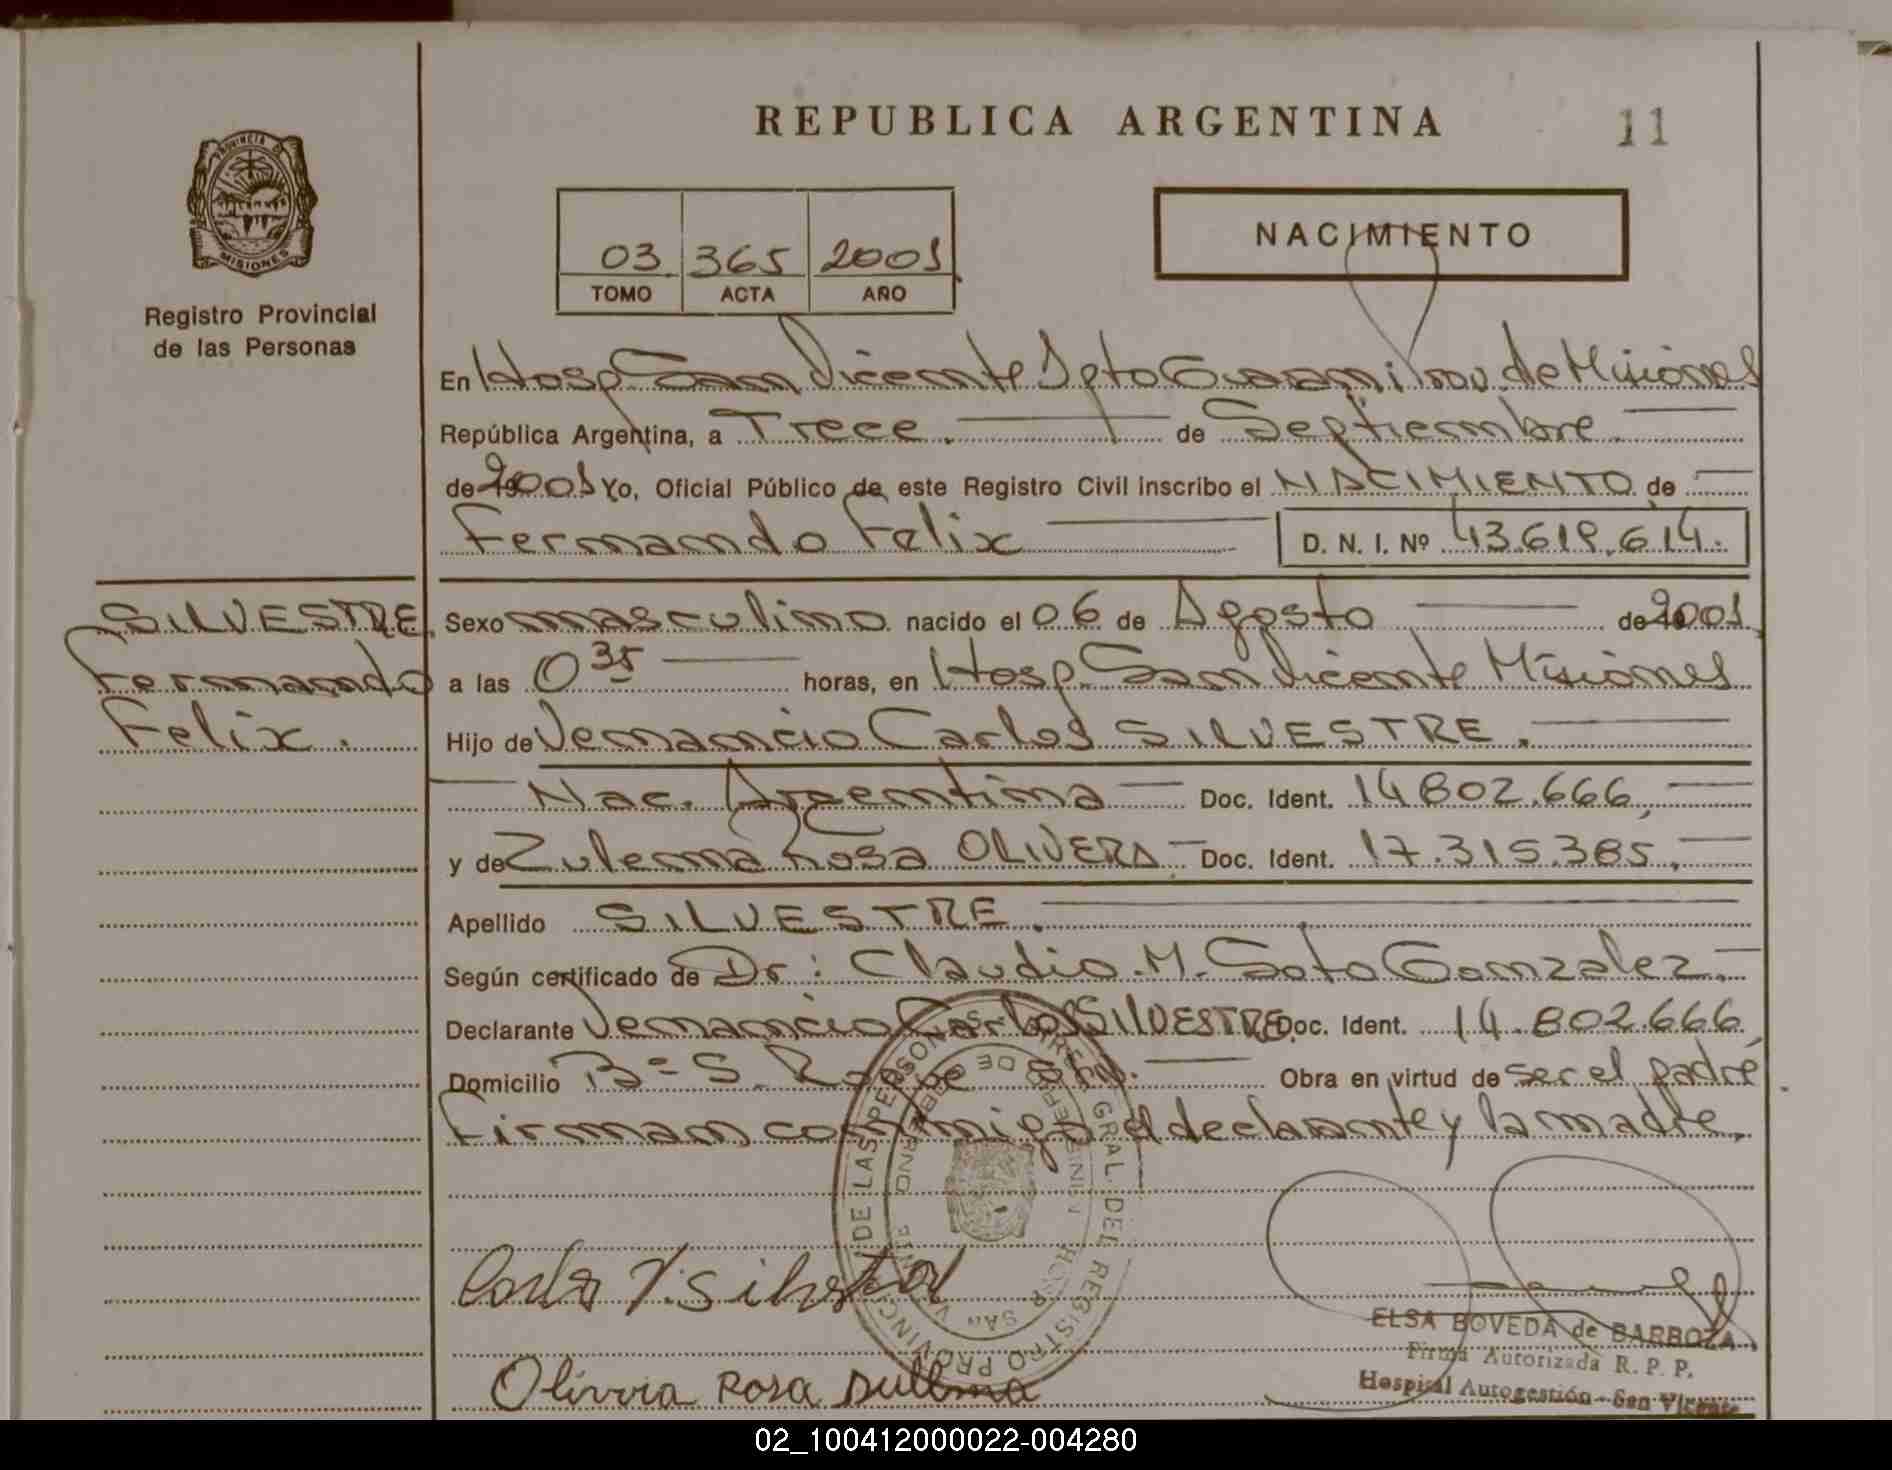 REPUBLICA ARGENTINA
11
PROVINCIA D
MISIONES
Registro Provincial
de las Personas
03 365 2001
TOMO ACTA AÑO
NACIMIENTO
En Hosp San Vicente Dpto Guarani Prov. de Misiones
República Argentina, a Trece. de Septiembre
de 2001 Yo, Oficial Público de este Registro Civil inscribo el NACIMIENTO de
Fernando Felix D. N. I. Nº 43.619.614.
SILVESTRE
Fernando
Felix.
Sexo masculino nacido el 06 de Agosto de 2001
a las 0 35 horas, en Hosp. San Vicente Misiones
Hijo de Venancio Carlos SILVESTRE.
Nac. Argentina Doc. Ident. 14.802.666,
y de Zulema Rosa OLIVERA Doc. Ident. 17.315.385,
Apellido SILVESTRE.
Según certificado de Dr: Claudio.M. Soto Gonzalez.
Declarante Venancio Carlos SILVESTRE Doc. Ident. 14.802.666
Domicilio Bº S. Roque Obra en virtud de ser el padre
Firman conmigo el declarante y la madre.
DIREC. GRAL. DEL REGISTRO PROVINC. DE LAS PERSONAS
Olivvia Rosa Sullma
ELSA BOVEDA de BARBOZA
Firma Autorizada R. P. P.
Hospital Autogestión - San Vicente
02_100412000022-004280